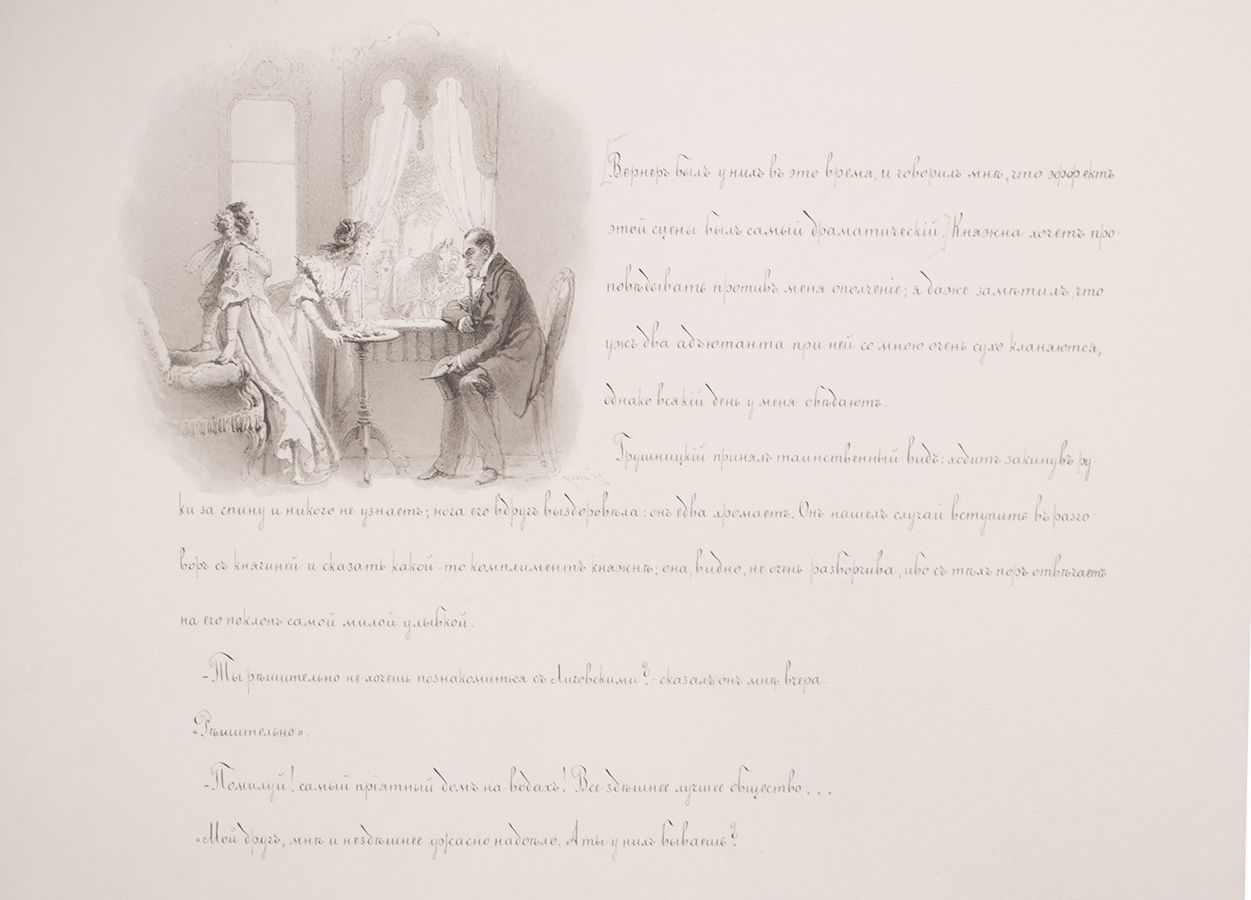 [Вернеръ былъ у нихъ въ это время, и говорилъ мнѣ, что эффектъ
этой сцены былъ самый драматическій.] Княжна хочетъ про-
повѣдывать противъ меня ополченіе; я даже замѣтилъ, что
ужъ два адъютанта при ней со мною очень сухо кланяются,
однако всякій день у меня обѣдаютъ.
Грушницкій принялъ таинственный видъ: ходитъ закинувъ ру-
ки за спину и никого не узнаетъ; нога его вдругъ выздоровѣла: онъ едва хромаетъ. Онъ нашелъ случай вступить въ разго-
воръ съ княгиней и сказать какой-то комплиментъ княжнѣ; она, видно, не очень разборчива, ибо съ тѣхъ поръ отвѣчаетъ
на его поклонъ самой милой улыбкой.
-Ты рѣшительно не хочешь познакомиться съ Лиговскими? -сказалъ онъ мнѣ вчера.
«Рѣшительно».
-Помилуй! самый пріятный домъ на водахъ! Все здѣшнее лучшее общество...
«Мой другъ, мнѣ и нездѣшнее ужасно надоѣло. А ты у нихъ бываешь?